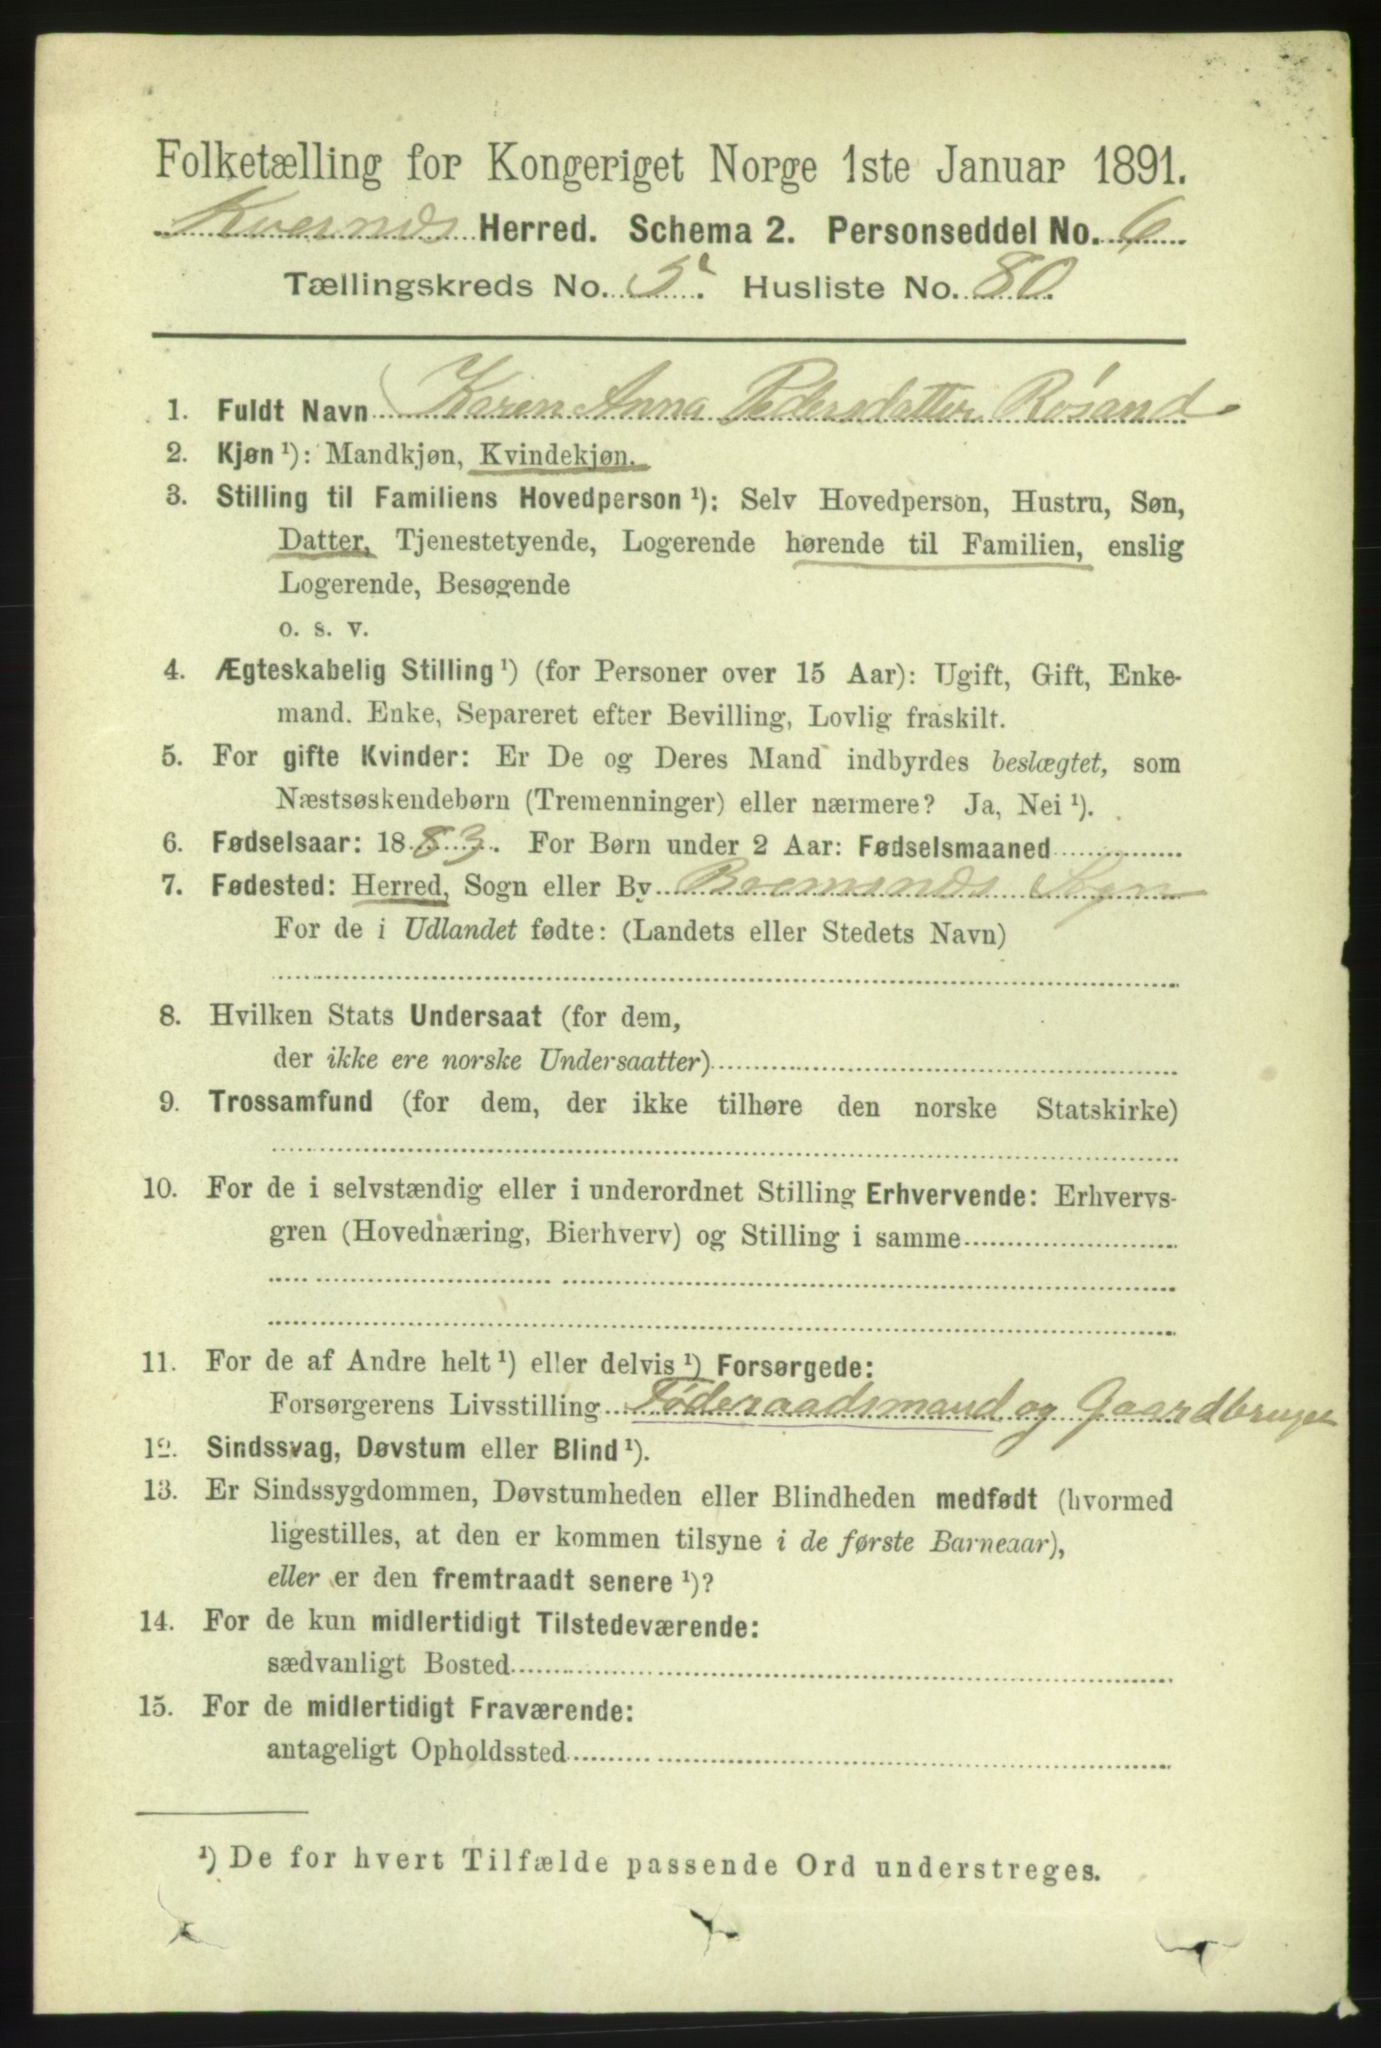 Folketælling for Kongeriget Norge 1ste Januar 1891.
Kvernes Herred. Schema 2. Personseddel No. 6
Tællingskreds No. 5. Husliste No. 80.
1. Fuldt Navn Karen Anna Pedersdatter Røsand
2. Kjøn ¹): Mandkjøn, Kvindekjøn.
3. Stilling til Familiens Hovedperson ¹): Selv Hovedperson, Hustru, Søn,
Datter, Tjenestetyende, Logerende hørende til Familien, enslig
Logerende, Besøgende
o. s. v.
4. Ægteskabelig Stilling ¹) (for Personer over 15 Aar): Ugift, Gift, Enke-
mand. Enke, Separeret efter Bevilling, Lovlig fraskilt.
5. For gifte Kvinder: Er De og Deres Mand indbyrdes beslægtet, som
Næstsøskendebørn (Tremenninger) eller nærmere? Ja, Nei ¹).
6. Fødselsaar: 1883. For Børn under 2 Aar: Fødselsmaaned
7. Fødested: Herred, Sogn eller By Bremsnes Sogn
For de i Udlandet fødte: (Landets eller Stedets Navn)
8. Hvilken Stats Undersaat (for dem,
der ikke ere norske Undersaatter)
9. Trossamfund (for dem, der ikke tilhøre den norske Statskirke)
10. For de i selvstændig eller i underordnet Stilling Erhvervende: Erhvervs-
gren (Hovednæring, Bierhverv) og Stilling i samme
11. For de af Andre helt ¹) eller delvis ¹) Forsørgede:
Forsørgerens Livsstilling Føderaadsmand og Gaardbruger
12. Sindssvag, Døvstum eller Blind ¹).
13. Er Sindssygdommen, Døvstumheden eller Blindheden medfødt (hvormed
ligestilles, at den er kommen tilsyne i de første Barneaar),
eller er den fremtraadt senere ¹)?
14. For de kun midlertidigt Tilstedeværende:
sædvanligt Bosted
15. For de midlertidigt Fraværende:
antageligt Opholdssted
¹) De for hvert Tilfælde passende Ord understreges.